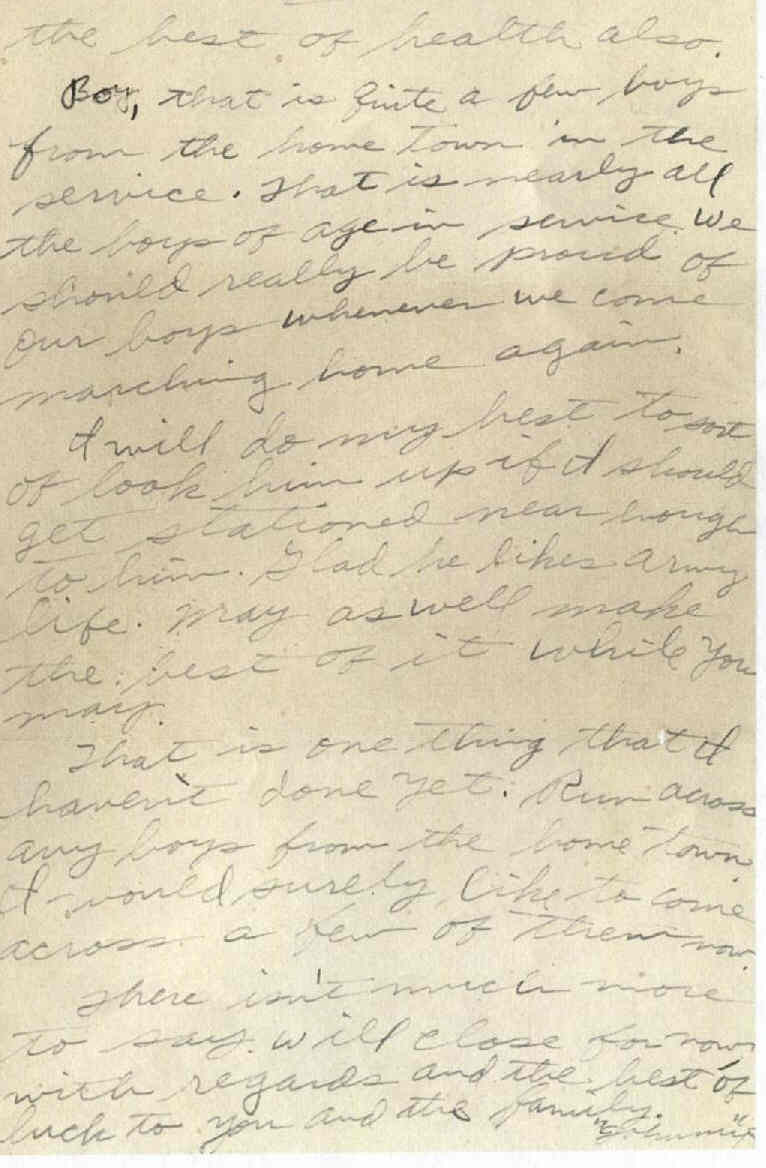 the best of health also.
Boy, that is quite a few boys
from the home town in the
service. That is nearly all
the boys of age in service. We
should really be proud of
our boys whenever we come
marching home again.
I will do my best to sort
of look him up if I should
get stationed near nough
to him. Glad he likes army
life. May as well make
the best of it while you
may.
That is one thing that I
haven't done yet. Run across
any boys from the home town
I would surely like to come
across a few of them now
There isn't much more
to say. Will close for now
with regards and the best of
luck to you and the family.
"Johnnie"